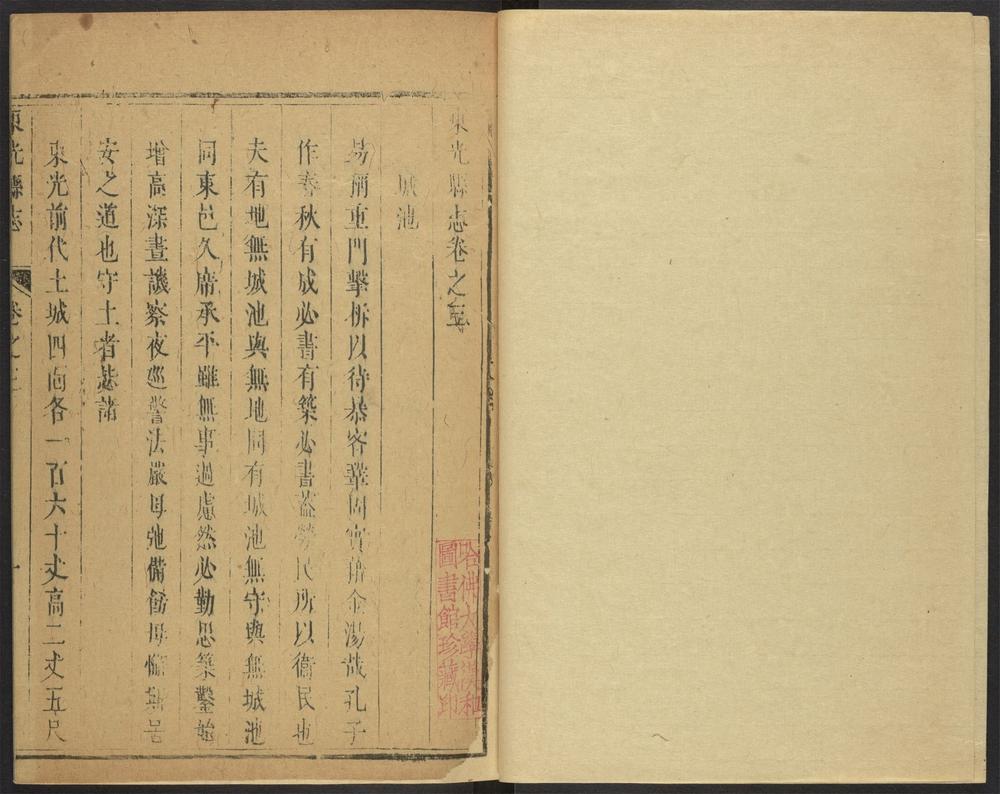 東光縣志卷之三
城池
易稱重門擊柝以待暴客鞏固實藉金湯哉孔子
作春秋有成必書有築必書蓋勞民所以衛民也
夫有地無城池與無地同有城池無守與無城池
同東邑久席承平雖無事過慮然必勤思築鑿始
增高深晝譏察夜廵警法嚴毋弛備飭毋懈
安之道也守土者恙諸
東光前代土城四面各一百六十丈高二丈五尺
東光縣志
卷之三
一
哈佛大學漢和
圖書館珍藏印